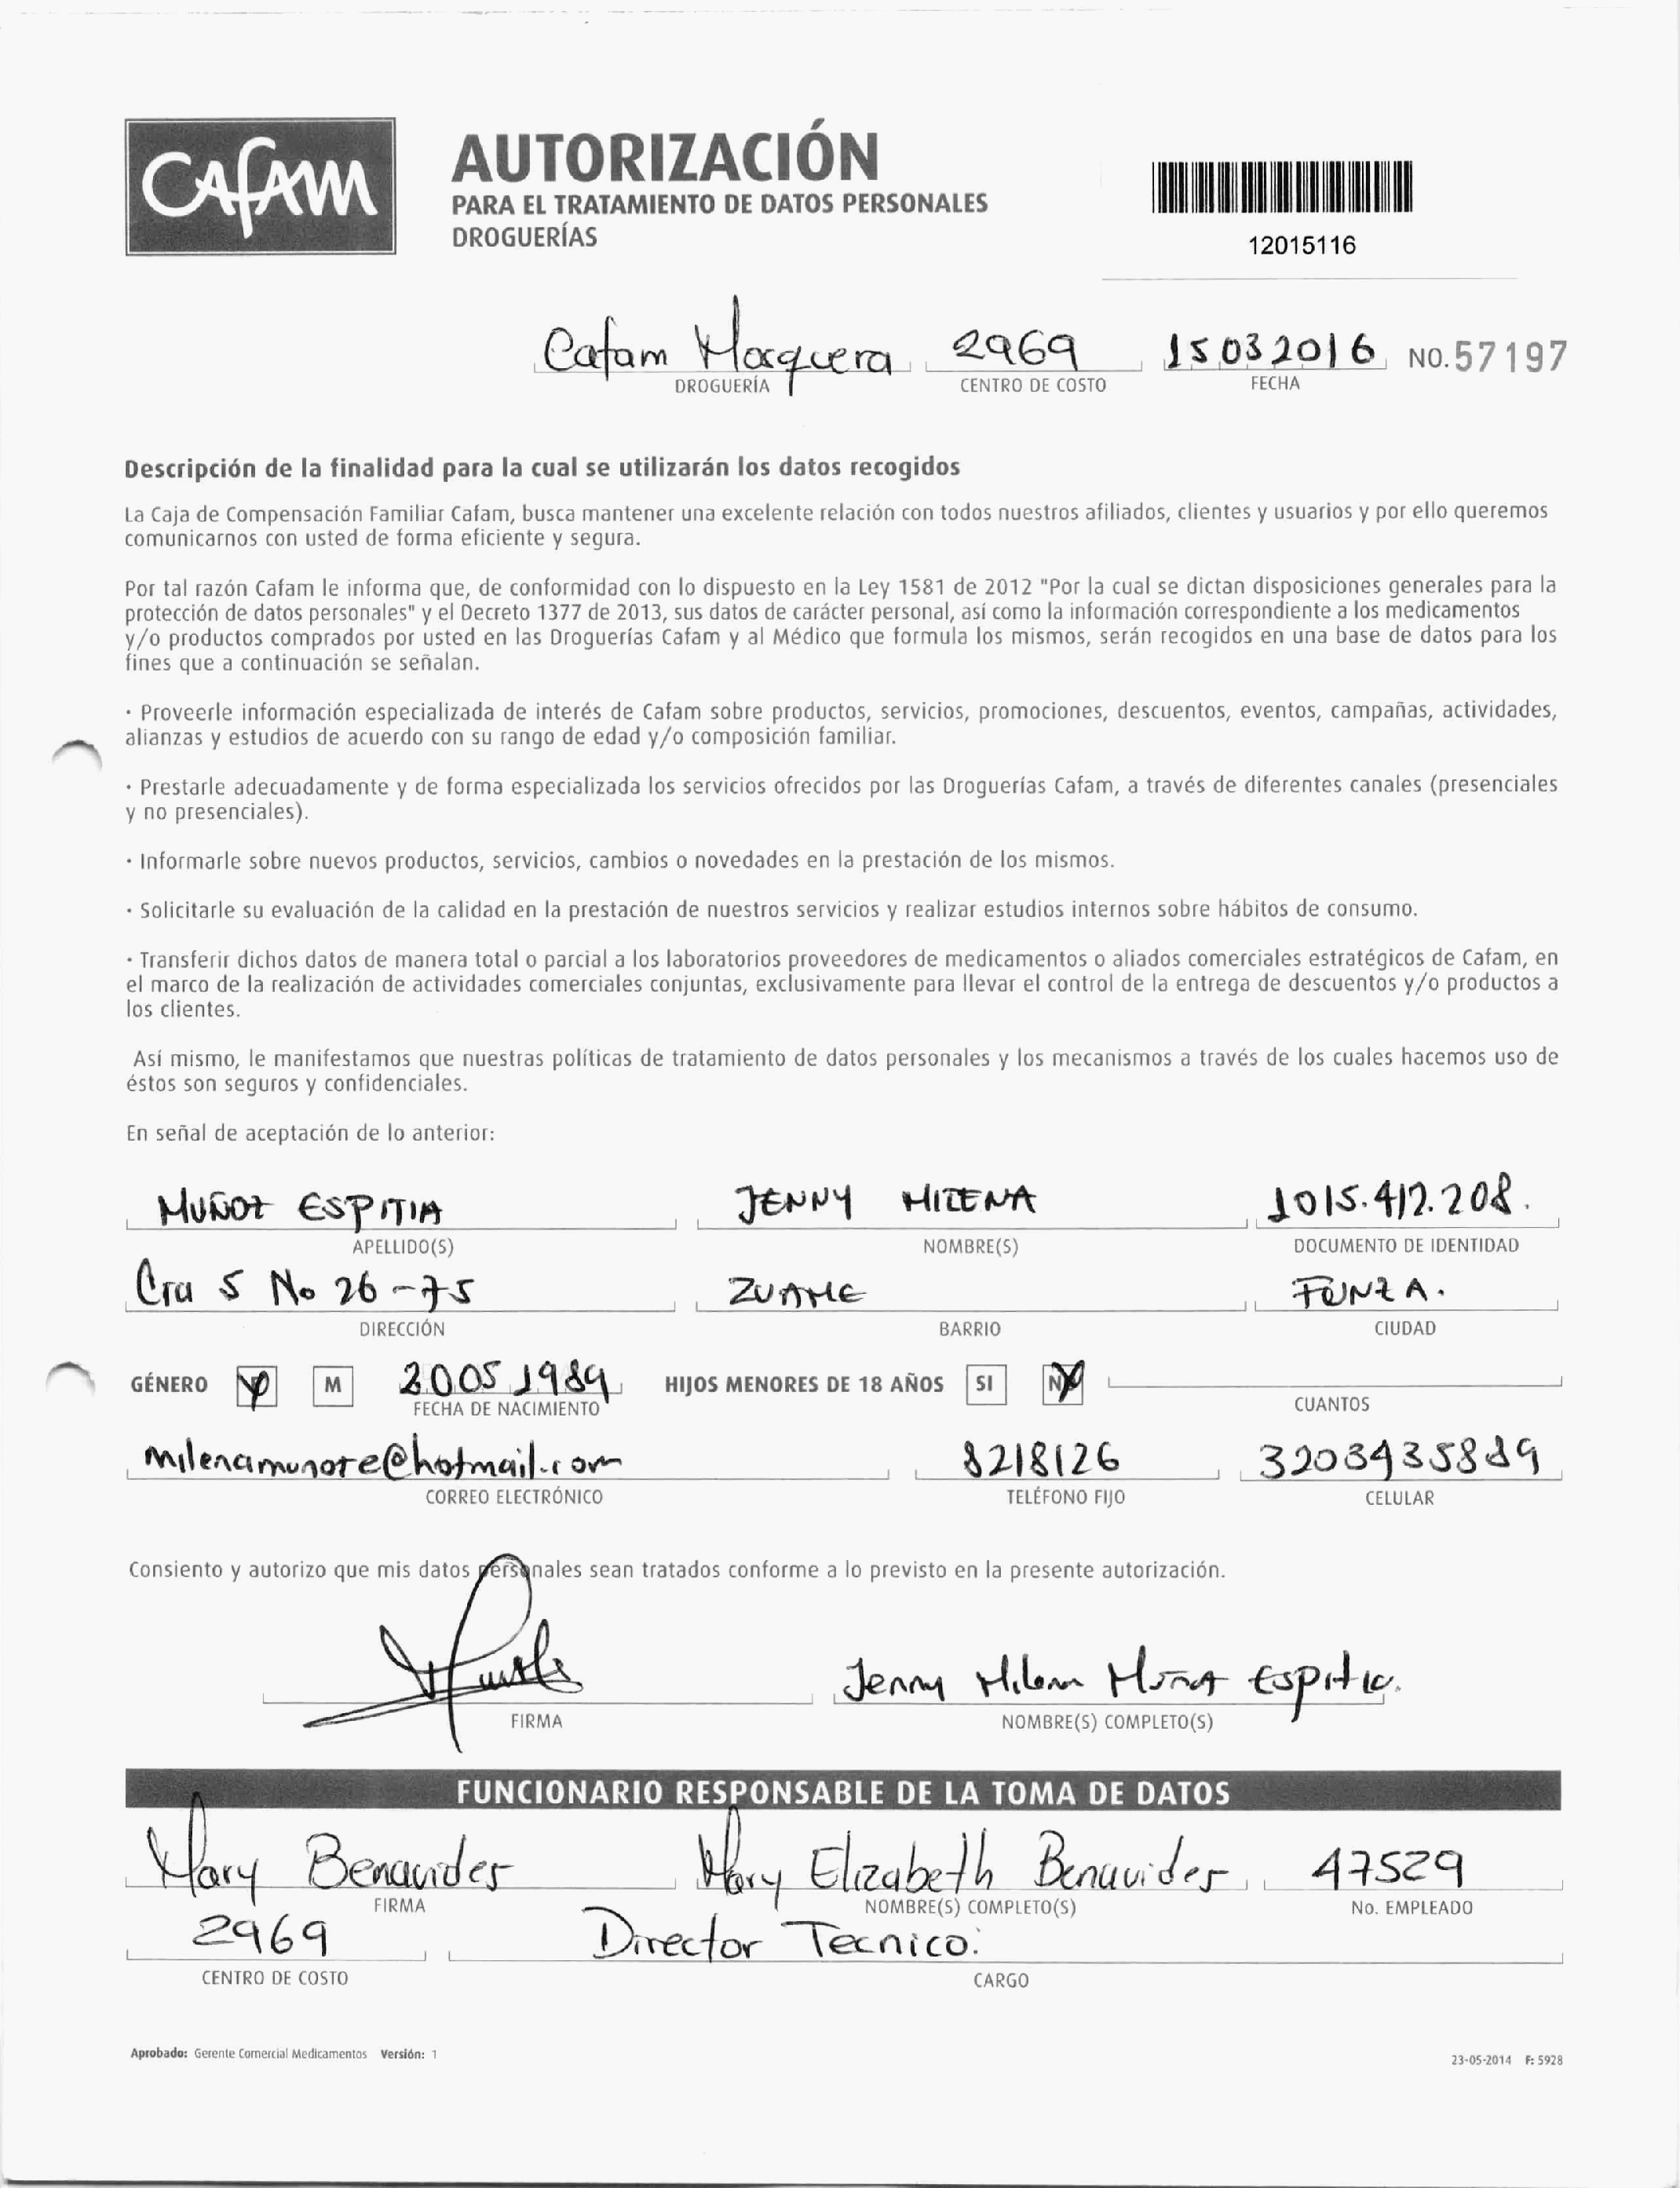 CAFAM
AUTORIZACIÓN
PARA EL TRATAMIENTO DE DATOS PERSONALES
DROGUERÍAS
12015116
Cafam Mosquera 2969 15032016 NO. 57197
DROGUERÍA CENTRO DE COSTO FECHA
Descripción de la finalidad para la cual se utilizarán los datos recogidos
La Caja de Compensación Familiar Cafam, busca mantener una excelente relación con todos nuestros afiliados, clientes y usuarios y por ello queremos
comunicarnos con usted de forma eficiente y segura.
Por tal razón Cafam le informa que, de conformidad con lo dispuesto en la Ley 1581 de 2012 "Por la cual se dictan disposiciones generales para la
protección de datos personales" y el Decreto 1377 de 2013, sus datos de carácter personal, así como la información correspondiente a los medicamentos
y/o productos comprados por usted en las Droguerías Cafam y al Médico que formula los mismos, serán recogidos en una base de datos para los
fines que a continuación se señalan.
· Proveerle información especializada de interés de Cafam sobre productos, servicios, promociones, descuentos, eventos, campañas, actividades,
alianzas y estudios de acuerdo con su rango de edad y/o composición familiar.
· Prestarle adecuadamente y de forma especializada los servicios ofrecidos por las Droguerías Cafam, a través de diferentes canales (presenciales
y no presenciales).
· Informarle sobre nuevos productos, servicios, cambios o novedades en la prestación de los mismos.
· Solicitarle su evaluación de la calidad en la prestación de nuestros servicios y realizar estudios internos sobre hábitos de consumo.
· Transferir dichos datos de manera total o parcial a los laboratorios proveedores de medicamentos o aliados comerciales estratégicos de Cafam, en
el marco de la realización de actividades comerciales conjuntas, exclusivamente para llevar el control de la entrega de descuentos y/o productos a
los clientes.
Así mismo, le manifestamos que nuestras políticas de tratamiento de datos personales y los mecanismos a través de los cuales hacemos uso de
éstos son seguros y confidenciales.
En señal de aceptación de lo anterior:
MUÑOZ ESPITIA JENNY MILENA 1015.412.208.
APELLIDO(S) NOMBRE(S) DOCUMENTO DE IDENTIDAD
Cra 5 No 26-75 ZUAME FUNZA.
DIRECCIÓN BARRIO CIUDAD
GÉNERO F M 20051989 HIJOS MENORES DE 18 AÑOS SI NO
FECHA DE NACIMIENTO CUANTOS
milenamunoze@hotmail.com 8218126
CORREO ELECTRÓNICO TELÉFONO FIJO CELULAR
Consiento y autorizo que mis datos personales sean tratados conforme a lo previsto en la presente autorización.
Jenny Milena Muñoz Espitia.
FIRMA NOMBRE(S) COMPLETO(S)
FUNCIONARIO RESPONSABLE DE LA TOMA DE DATOS
Mary Benavides Mary Elizabeth Benavides 47529
FIRMA NOMBRE(S) COMPLETO(S) No. EMPLEADO
2969 Director Tecnico.
CENTRO DE COSTO CARGO
Aprobado: Gerente Comercial Medicamentos Versión: 1
23-05-2014 F: 5928